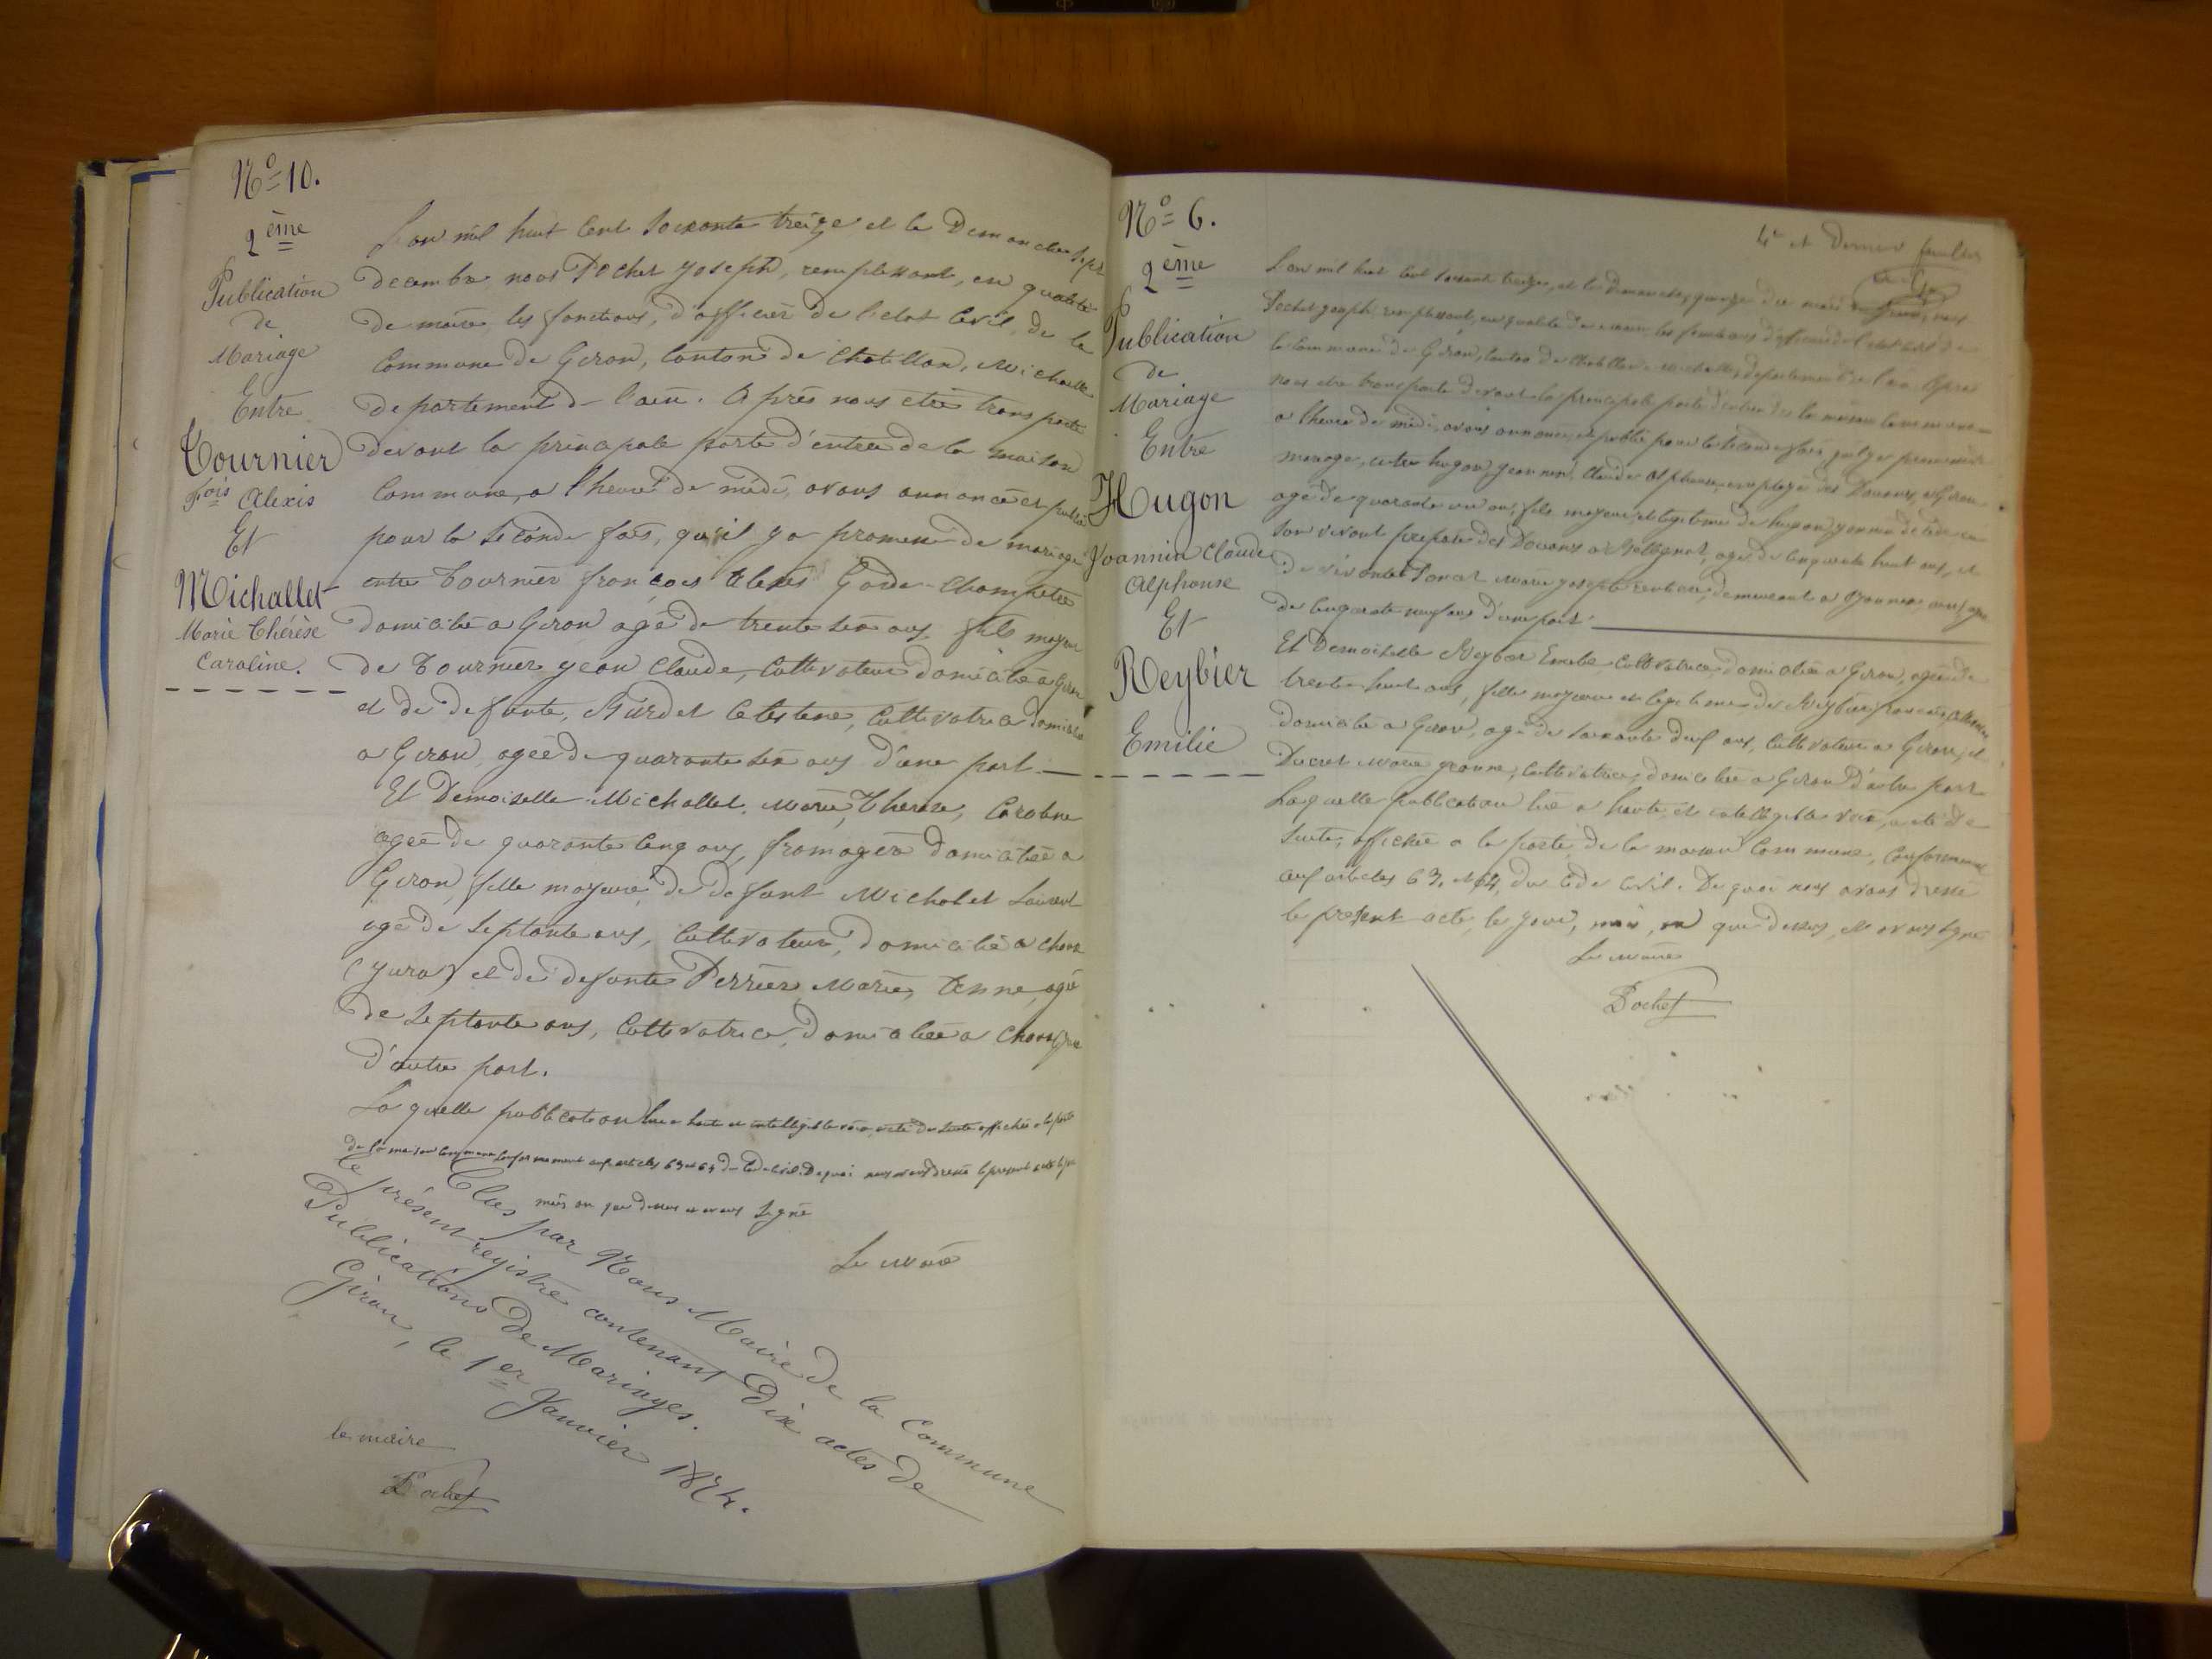 N° 10.
2ème
Publication
de
Mariage
Entre
Tournier
fois Alexis
Et
Michallet
Marie Thérèse
Caroline.
L'an mil huit cent soixante treize et le Dimanche sept
decembre nous Pochet joseph, remplissant, en qualité
de maire, les fonctions, d'officier de l'etat Civil, de la
Commune de Giron, Canton de Chatillon, Michaille
departement de l'ain. Après nous etre transporte
devant la principale porte d'entree de la maison
Commune, a l'heure de midi, avons annonce et publie
pour la seconde fois, qu'il y a promesse de mariage
entre Tournier françois Alexis Garde-Champetre
domicilié a Giron agé de trente six ans, fils majeur
de Tournier jean Claude, Cultivateur domicilié a Giron
et de defunte, Burdet Celestine, Cultivatrice domicilié
a Giron, ageé de quarante six ans d'une part
Et Demoiselle Michallet, Marie, Therese, Caroline
ageé de quarante cinq ans, fromagère domiciliée a
Giron, fille majeure de defunt Michalet Laurent
agé de septante ans, Cultivateur, domicilié a
(jura) et de defunte Perrier Marie, Anne, agé
de septante ans, Cultivatrice, domiciliée a
d'autre part.
La quelle publication lue a haute et intelligible voix, a eté de suite affichée a la porte
de la maison Commune, Conformement aux articles 63 et 64 du Code Civil. De quoi nous avons dressé le present acte le jour
mois an que dessus et avons signé
Le Maire
Clos par Nous Maire de la Commune
le présent registre contenant Dix actes de
Publications de Mariages.
Giron, le 1er Janvier 1874.
le maire
Pochet
4e et Dernier feuillet
N° 6.
2ème
Publication
de
Mariage
Entre
Hugon
Joannin Claude
Alphonse
Et
Reybier
Emilie
L'an mil huit cent soixante treize, et le dimanche, quinze du mois de nous
Pochet joseph, remplissant, en qualité de maire les fonctions d'officier de l'etat civil de
la Commune de Giron, Canton de Chatillon de Michaille, departement de l'ain. Apres
nous etre transporte devant la principale porte d'entree de la maison Commune
a l'heure de midi, avons annonce, et publié pour la seconde fois, qu'il y a promesse de
mariage, entre hugon, Claude Alphonse employe des Douanes, a Giron
agé de quarante un ans, fils majeur, et legitime de hugon
son vivant prepose des Douanes a agé de cinquante huit ans, et
de Marie josephe rentiere, demeurant a
de cinquante neuf ans d'une part.
Et Demoiselle Reybier Emilie Cultivatrice, domiciliée a Giron, ageé de
trente huit ans, fille majeure et legitime de Reybier francois
domicilié a Giron, agé de soixante neuf ans, Cultivateur a Giron, et
Ducret Marie jeanne, Cultivatrice, domiciliée a Giron d'autre part
Laquelle publication lue a haute, et intelligible voix, a eté de
suite, affichée a la porte de la maison Commune, Conformement
aux articles 63, et 64, du Code Civil. De quoi nous avons dressé
le present acte le jour, mois, an que dessus, et avons signé
Le Maire
Pochet